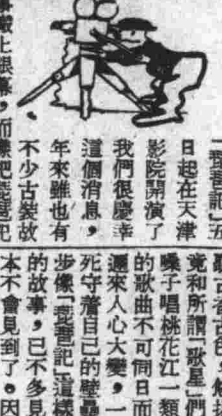 「琵琶記」五
日起在天津
影院開演了
我們很慶幸
這個消息，
年來雖也有
不少古裝故
事戲上銀幕，而把琵琶記
竟和所謂「歌星」們
嗓子唱桃花江一類
的歌曲不可同日而
邇來人心大變，一
死守著自己的壁壘
步像「琵琶記」這樣
的故事，已不多見
本不會見到了。因